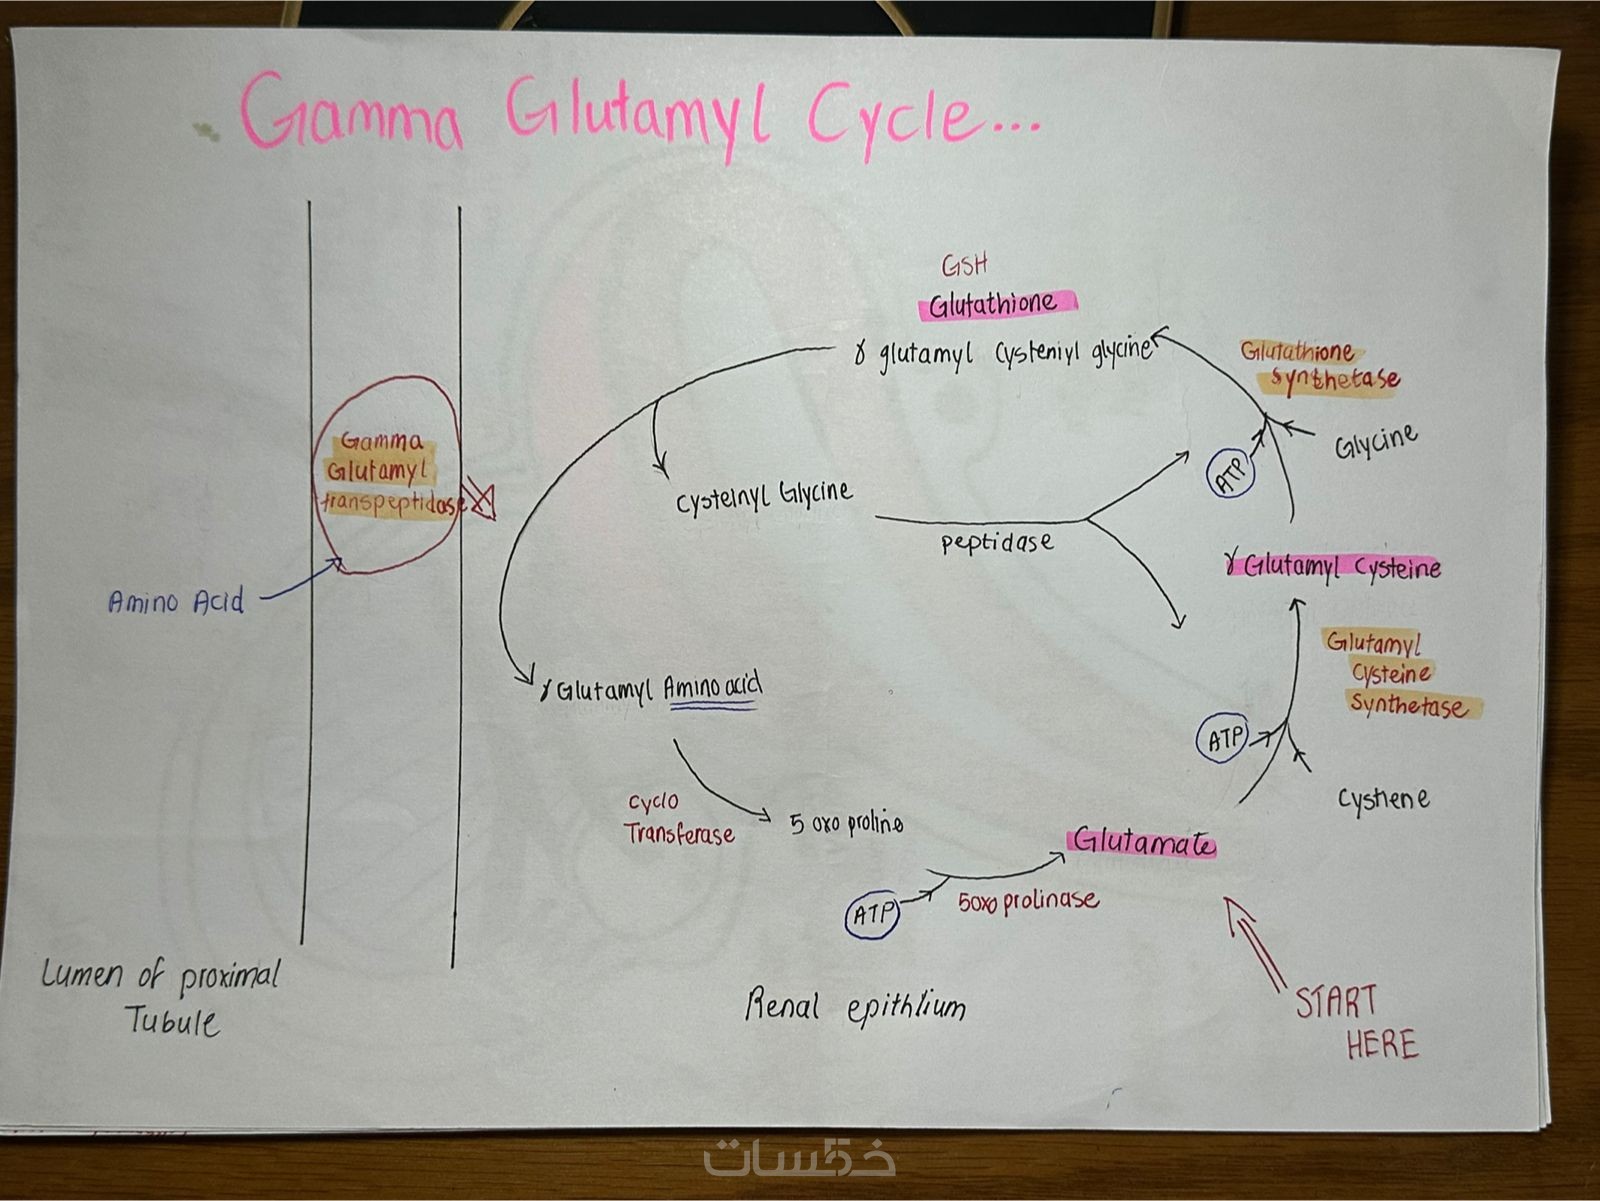 Gamma Glutamyl Cycle...
GSH
Glutathione
γ glutamyl Cysteniyl glycine
Glutathione
synthetase
Glycine
ATP
Gamma
Glutamyl
transpeptidase
Cysteinyl Glycine
peptidase
γ Glutamyl Cysteine
Amino Acid
Glutamyl
Cysteine
Synthetase
γ Glutamyl Amino acid
ATP
Cystiene
Cyclo
Transferase
5 oxo proline
Glutamate
ATP
5oxo prolinase
Lumen of proximal
Tubule
Renal epithlium
START
HERE
خمسات